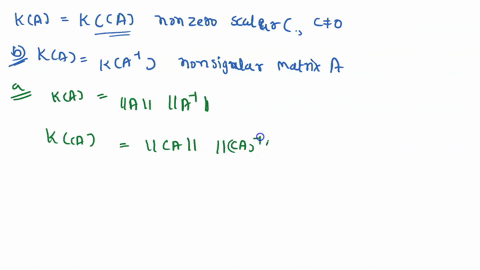 K(A) = K(CA) nonzero scalar C, C≠0
b) K(A) = K(A⁻¹) nonsigular matrix A
a K(A) = ||A|| ||A⁻¹|
K(CA) = ||CA|| ||(CA)⁻¹,